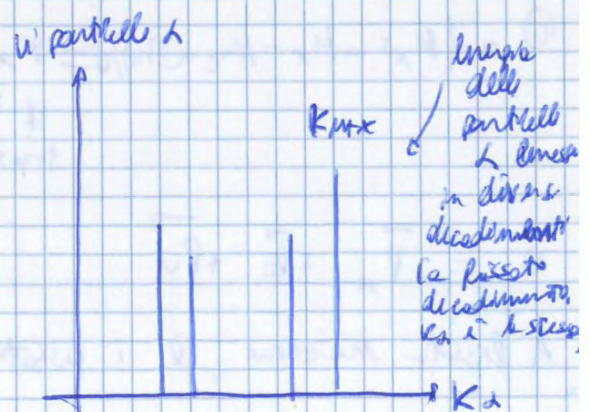 n° particelle α
Energia
delle
particelle
α emesse
in diversi
decadimenti
(a fissato
decadimento,
Kα è la stessa)
KMAX
Kα